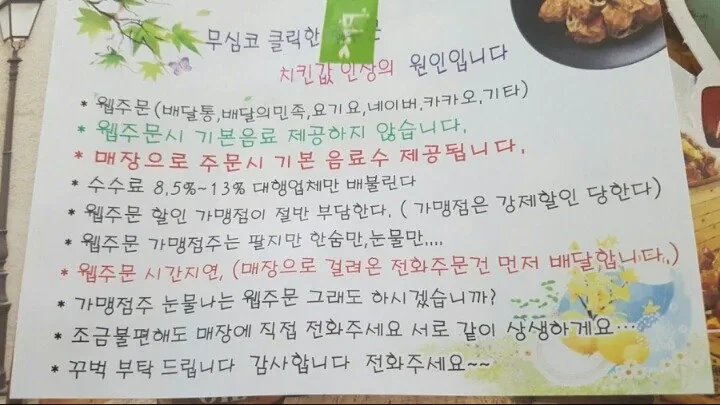 무심코 클릭한
치킨값 인상의 원인입니다
* 웹주문(배달통,배달의민족,요기요,네이버,카카오,기타)
* 웹주문시 기본음료 제공하지 않습니다.
* 매장으로 주문시 기본 음료수 제공됩니다.
* 수수료 8.5%~13% 대행업체만 배불린다
* 웹주문 할인 가맹점이 절반 부담한다. ( 가맹점은 강제할인 당한다)
* 웹주문 가맹점주는 팔지만 한숨만,눈물만....
* 웹주문 시간지연, (매장으로 걸려온 전화주문건 먼저 배달합니다.)
* 가맹점주 눈물나는 웹주문 그래도 하시겠습니까?
* 조금불편해도 매장에 직접 전화주세요 서로 같이 상생하게요…
* 꾸벅 부탁 드립니다 감사합니다 전화주세요~~